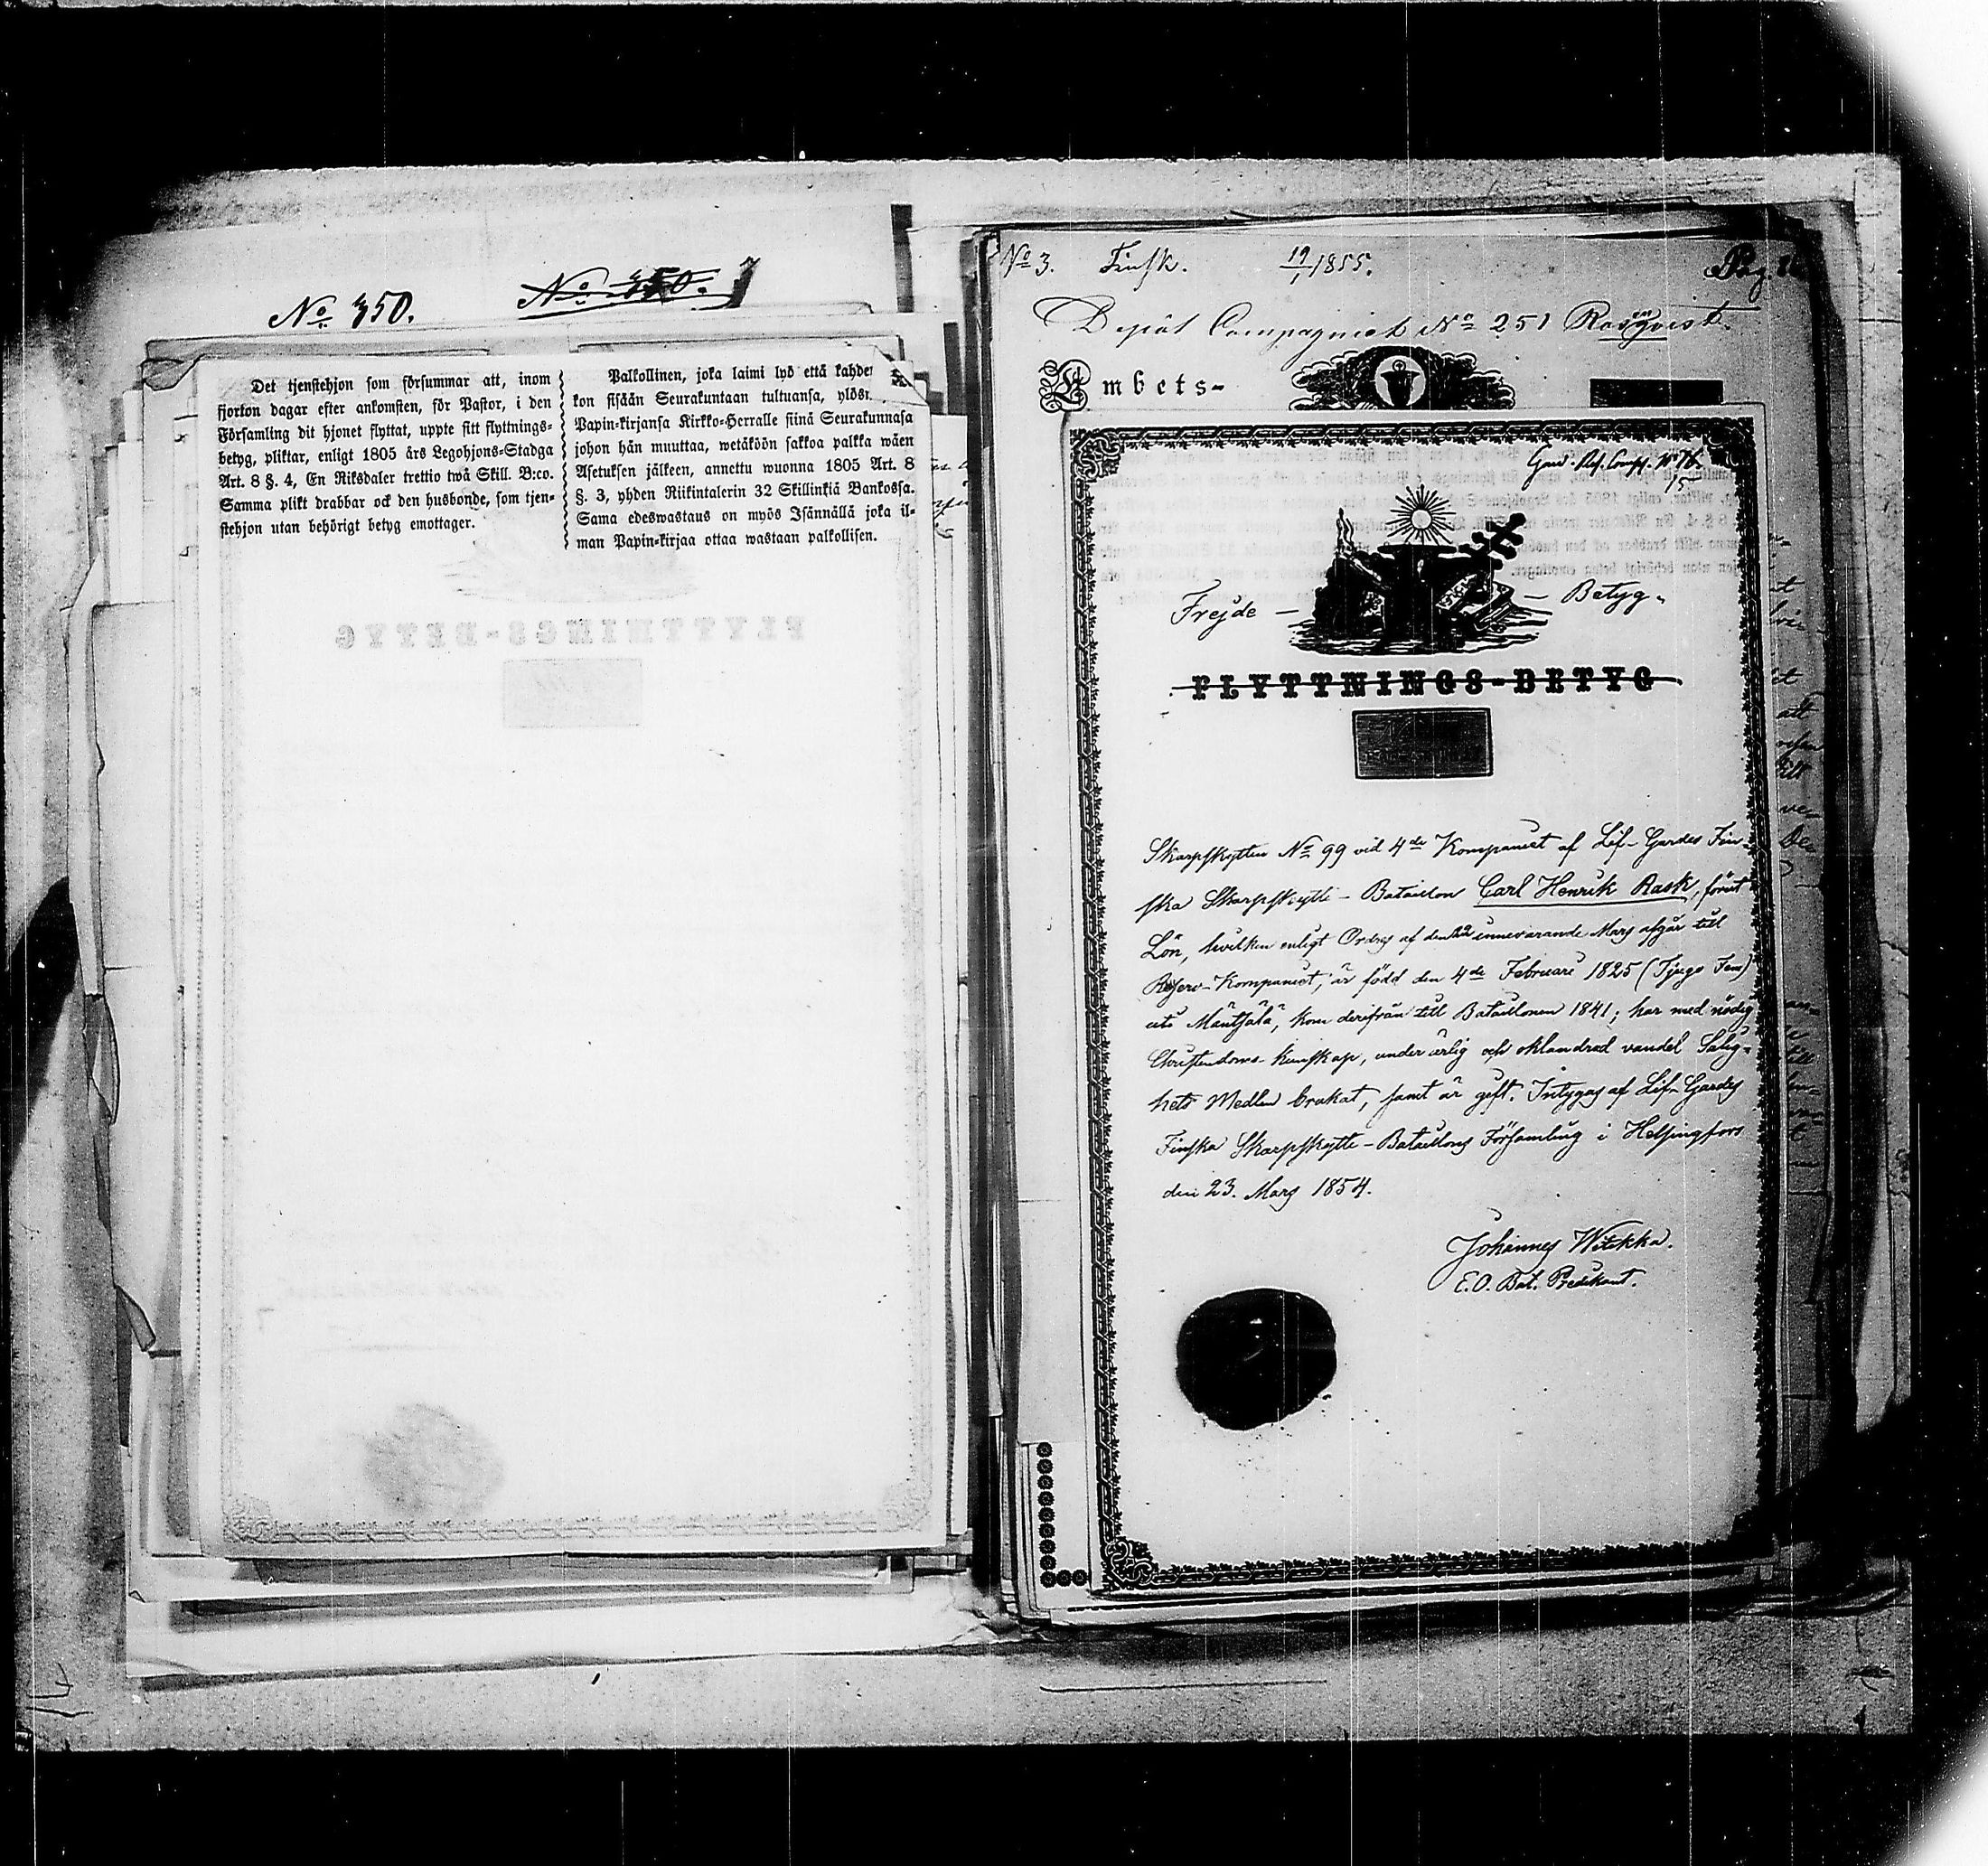 No 350.
No 350.
Det tjenstehjon som försummar att, inom
fjorton dagar efter ankomsten, för Pastor, i den
Församling dit hjonet flyttat, uppte sitt flyttnings-
betyg, pliktar, enligt 1805 års Legohjons-Stadga
Art. 8 §. 4, En Riksdaler trettio twå Skill. B:co.
Samma plikt drabbar ock den husbonde, som tjen-
stehjon utan behörigt betyg emottager.
Palkollinen, joka laimi lyö että kahde
kon sisään Seurakuntaan tultuansa, ylös
Papin-kirjansa Kirkko-Herralle siinä Seurakunnasa
johon hän muuttaa, wetäköön sakkoa palkka wäen
Asetuksen jälkeen, annettu wuonna 1805 Art. 8
§. 3, yhden Riikintalerin 32 Skillinkiä Bankossa.
Sama edeswastaus on myös Isännällä joka il-
man Papin-kirjaa ottaa wastaan palkollisen.
No 3. Finsk. 19/1 1855. Pag.
Depôt Compagniet No 251 Rosqvist.
Embets-
Gard. Res. Comp. No 78
15
Frejde — — Betyg.
FLYTTNINGS-BETYG
Skarpskytten No 99 vid 4de Kompaniet af Lif-Gardes Fin-
ska Skarpskytte-Bataillon Carl Henrik Rask, förut
Lön, hvilken enligt Ordres af den 22 innevarande Mars afgår till
Reserv-Kompaniet, är född den 4de Februari 1825 (Tjugo Fem)
uti Mäntsälä, kom derifrån till Bataillonen 1841; har med nödig
Christendoms-kunskap, under ärlig och oklandrad vandel Salig-
hets Medlen brukat, samt är gift. Intygas af Lif-Gardes
Finska Skarpskytte-Bataillons Församling i Helsingfors
den 23. Mars 1854.
Johannes Witikka.
E.O. Bat. Predikant.